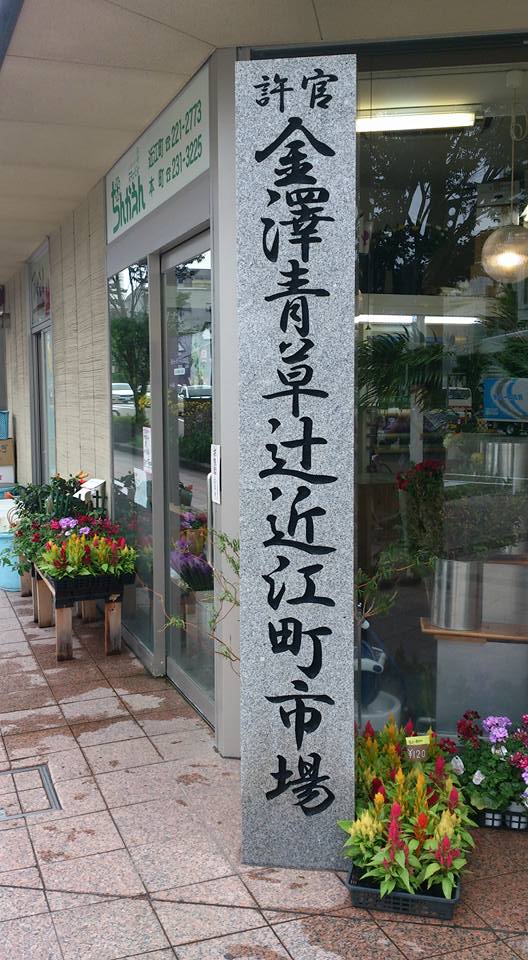 許官
金澤青草辻近江町市場
近江町☎221-2773
本町☎231-3225
¥120